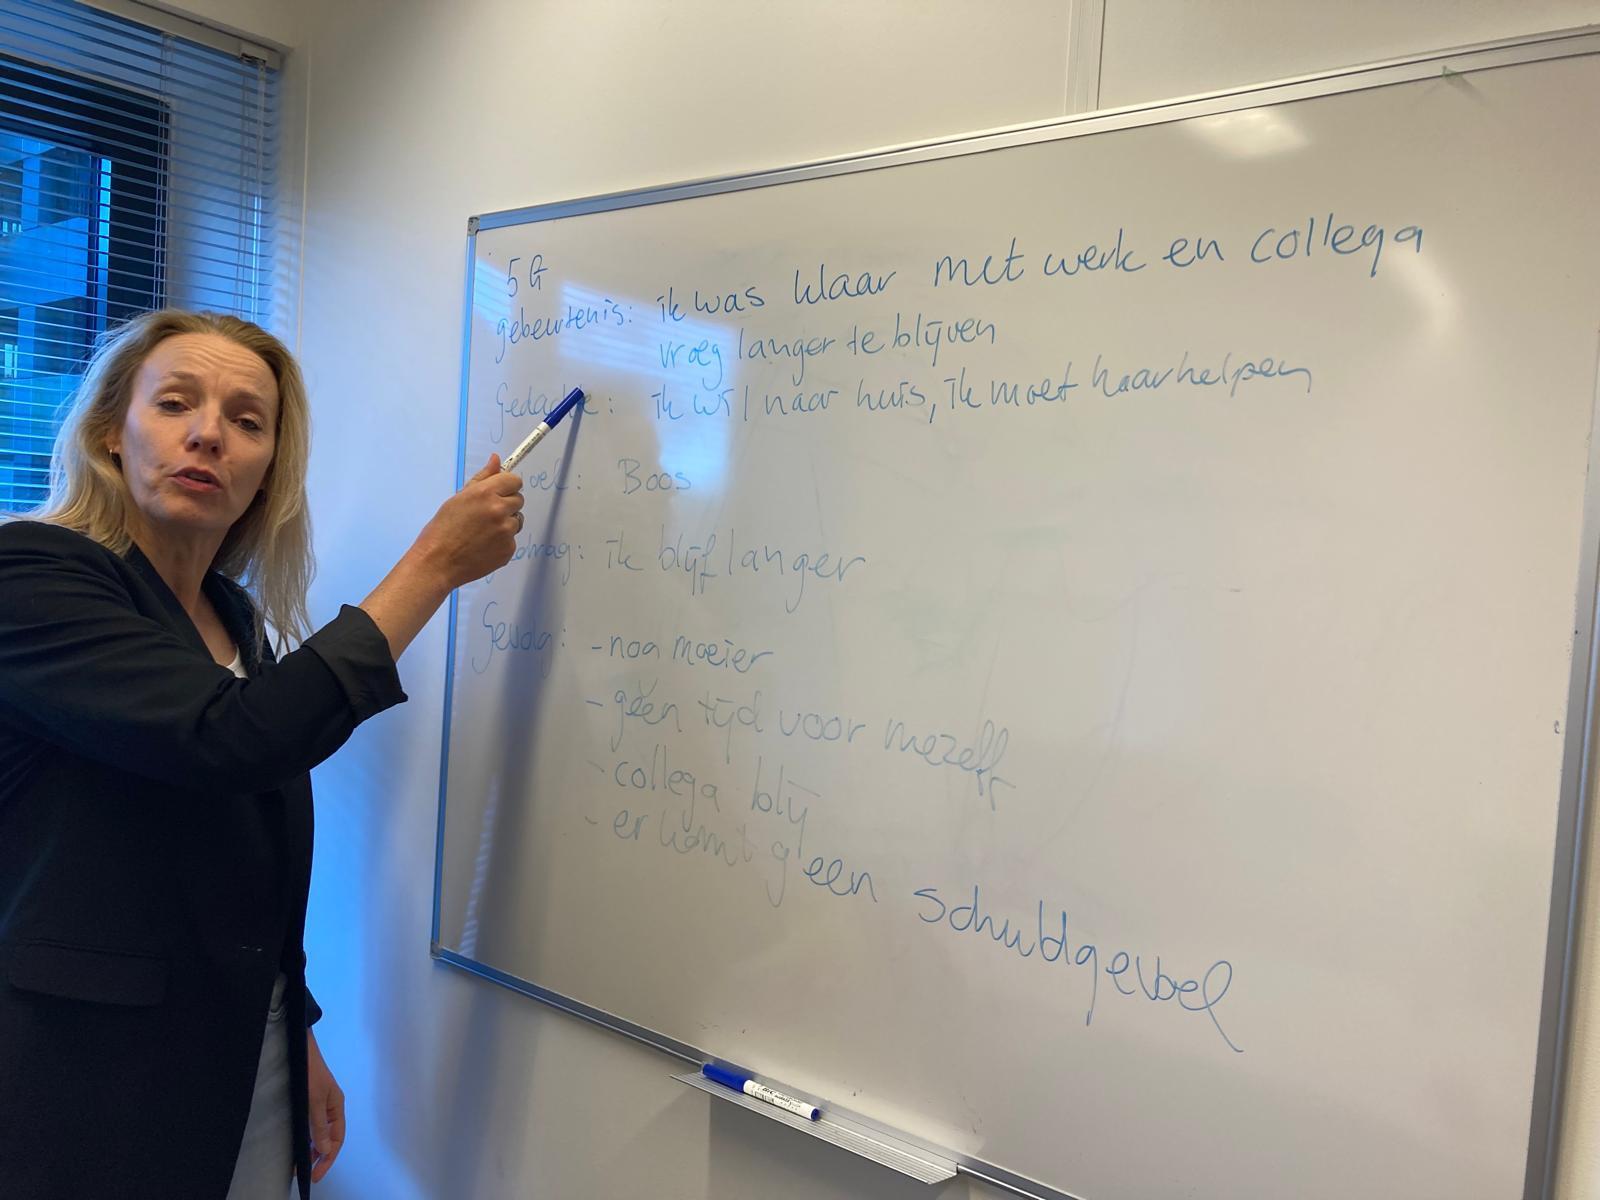 5G
gebeurtenis: ik was klaar met werk en collega
vroeg langer te blijven
Gedachte: ik wil naar huis, ik moet haar helpen
oel: Boos
edrag: ik blijf langer
Gevolg: - nog moeier
- geen tijd voor mezelf
- collega blij
- er komt geen schuldgevoel